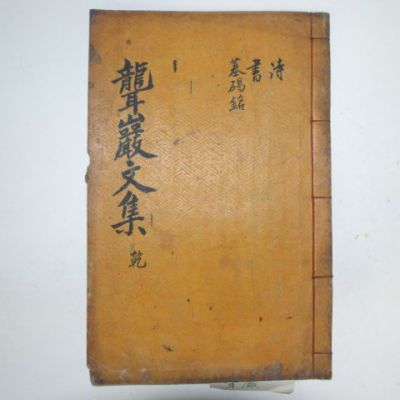 詩
書
墓碣銘
聾巖文集
乾